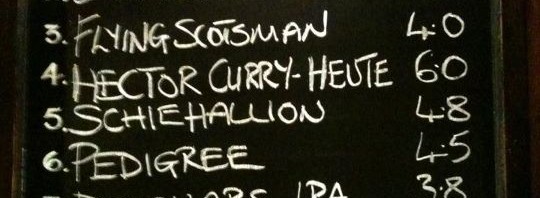 3. FLYING SCOTSMAN 4.0
4. HECTOR CURRY-HEUTE 6.0
5. SCHIEHALLION 4.8
6. PEDIGREE 4.5
IPA 3.8